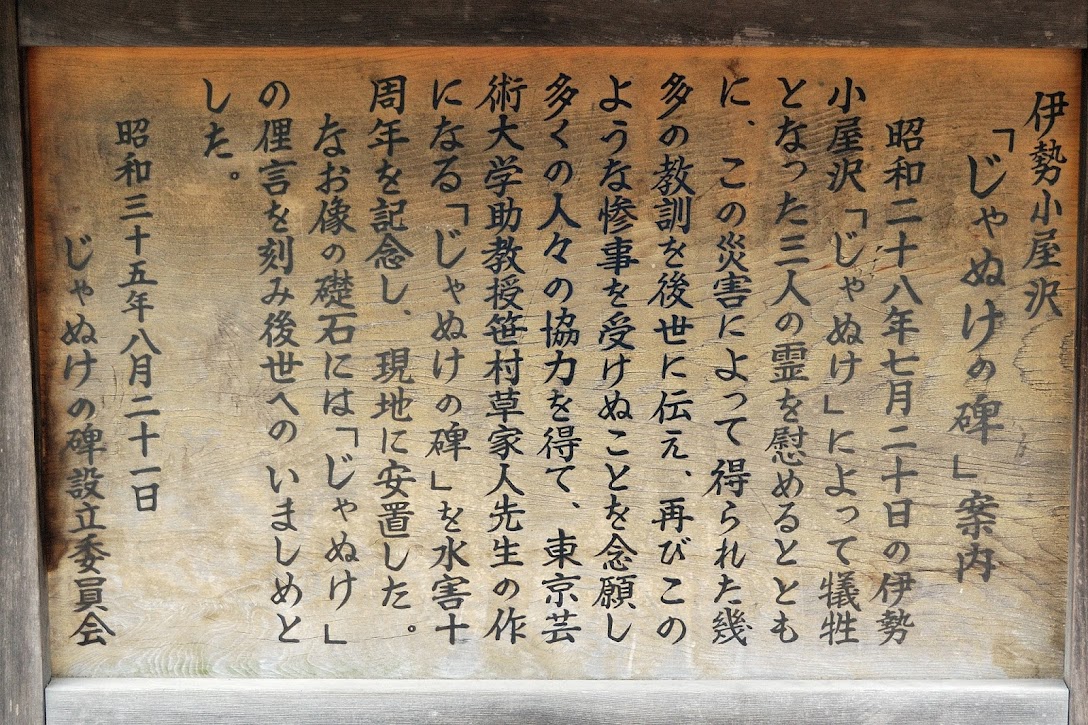 伊勢小屋沢
「じゃぬけの碑」案内
昭和二十八年七月二十日の伊勢
小屋沢「じゃぬけ」によって犠牲
となった三人の霊を慰めるととも
に、この災害によって得られた幾
多の教訓を後世に伝え、再びこの
ような惨事を受けぬことを念願し
多くの人々の協力を得て、東京芸
術大学助教授笹村草家人先生の作
になる「じゃぬけの碑」を水害十
周年を記念し、現地に安置した。
なお像の礎石には「じゃぬけ」
の俚言を刻み後世へのいましめと
した。
昭和三十五年八月二十一日
じゃぬけの碑設立委員会